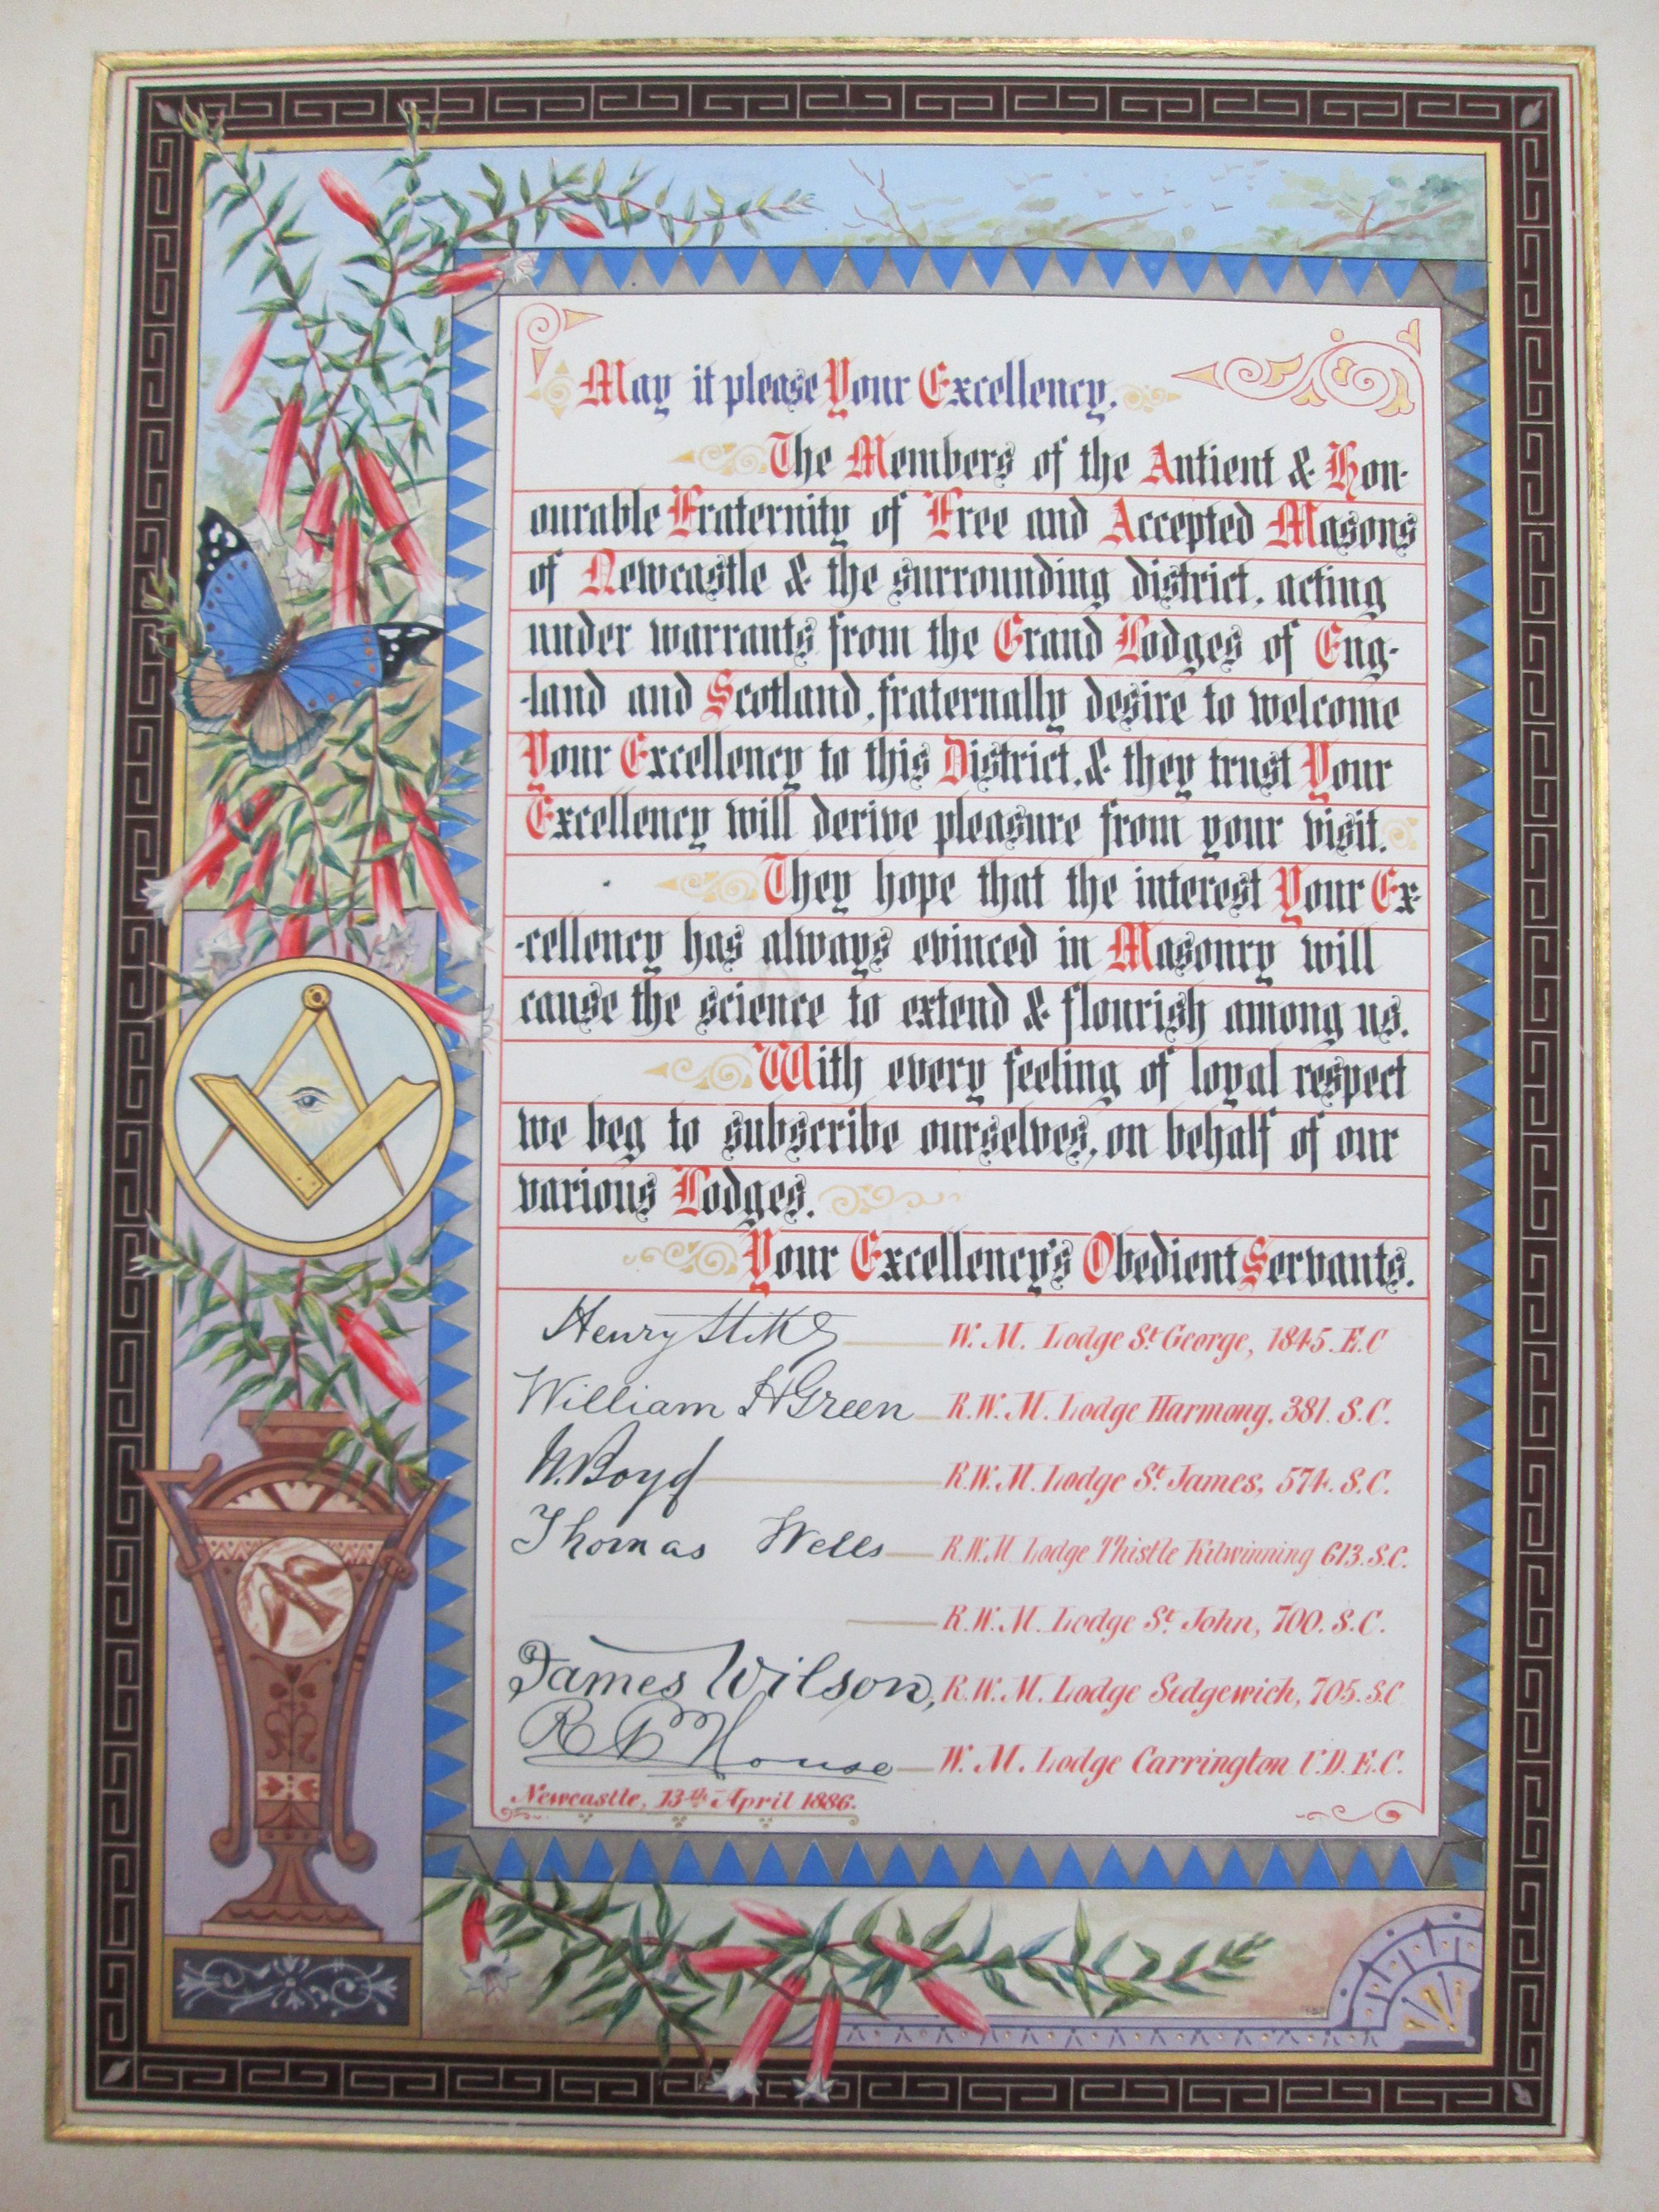 May it please Your Excellency.
The Members of the Antient & Hon-
ourable Fraternity of Free and Accepted Masons
of Newcastle & the surrounding district, acting
under warrants from the Grand Lodges of Eng-
-land and Scotland, fraternally desire to welcome
Your Excellency to this District, & they trust Your
Excellency will derive pleasure from your visit.
They hope that the interest Your Ex-
-cellency has always evinced in Masonry will
cause the science to extend & flourish among us.
With every feeling of loyal respect
we beg to subscribe ourselves, on behalf of our
various Lodges.
Your Excellency's Obedient Servants.
Henry W. M. Lodge St. George, 1845. E.C
William H Green R. W. M. Lodge Harmony, 381. S.C.
Boyd R. W. M. Lodge St. James, 574. S.C.
Thomas Wells R. W. M. Lodge Thistle Kilwinning 613. S.C.
R. W. M. Lodge St. John, 700. S.C.
James Wilson, R. W. M. Lodge Sedgewich, 705. S.C
House W. M. Lodge Carrington U.D. E.C.
Newcastle, 13th April 1886.